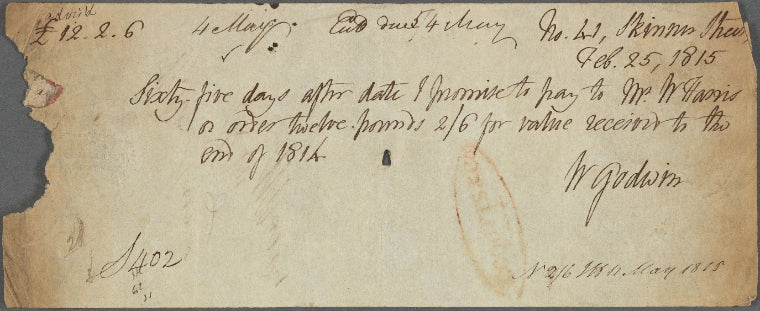 Godwin
£12.2.6 4 May End due 4 May No. 41, Skinner Street,
Feb. 25, 1815
Sixty-five days after date I promise to pay to Mr. W Harris
or order twelve pounds 2/6 for value received to the
end of 1814
W Godwin
S402
N 2/6 May 1815